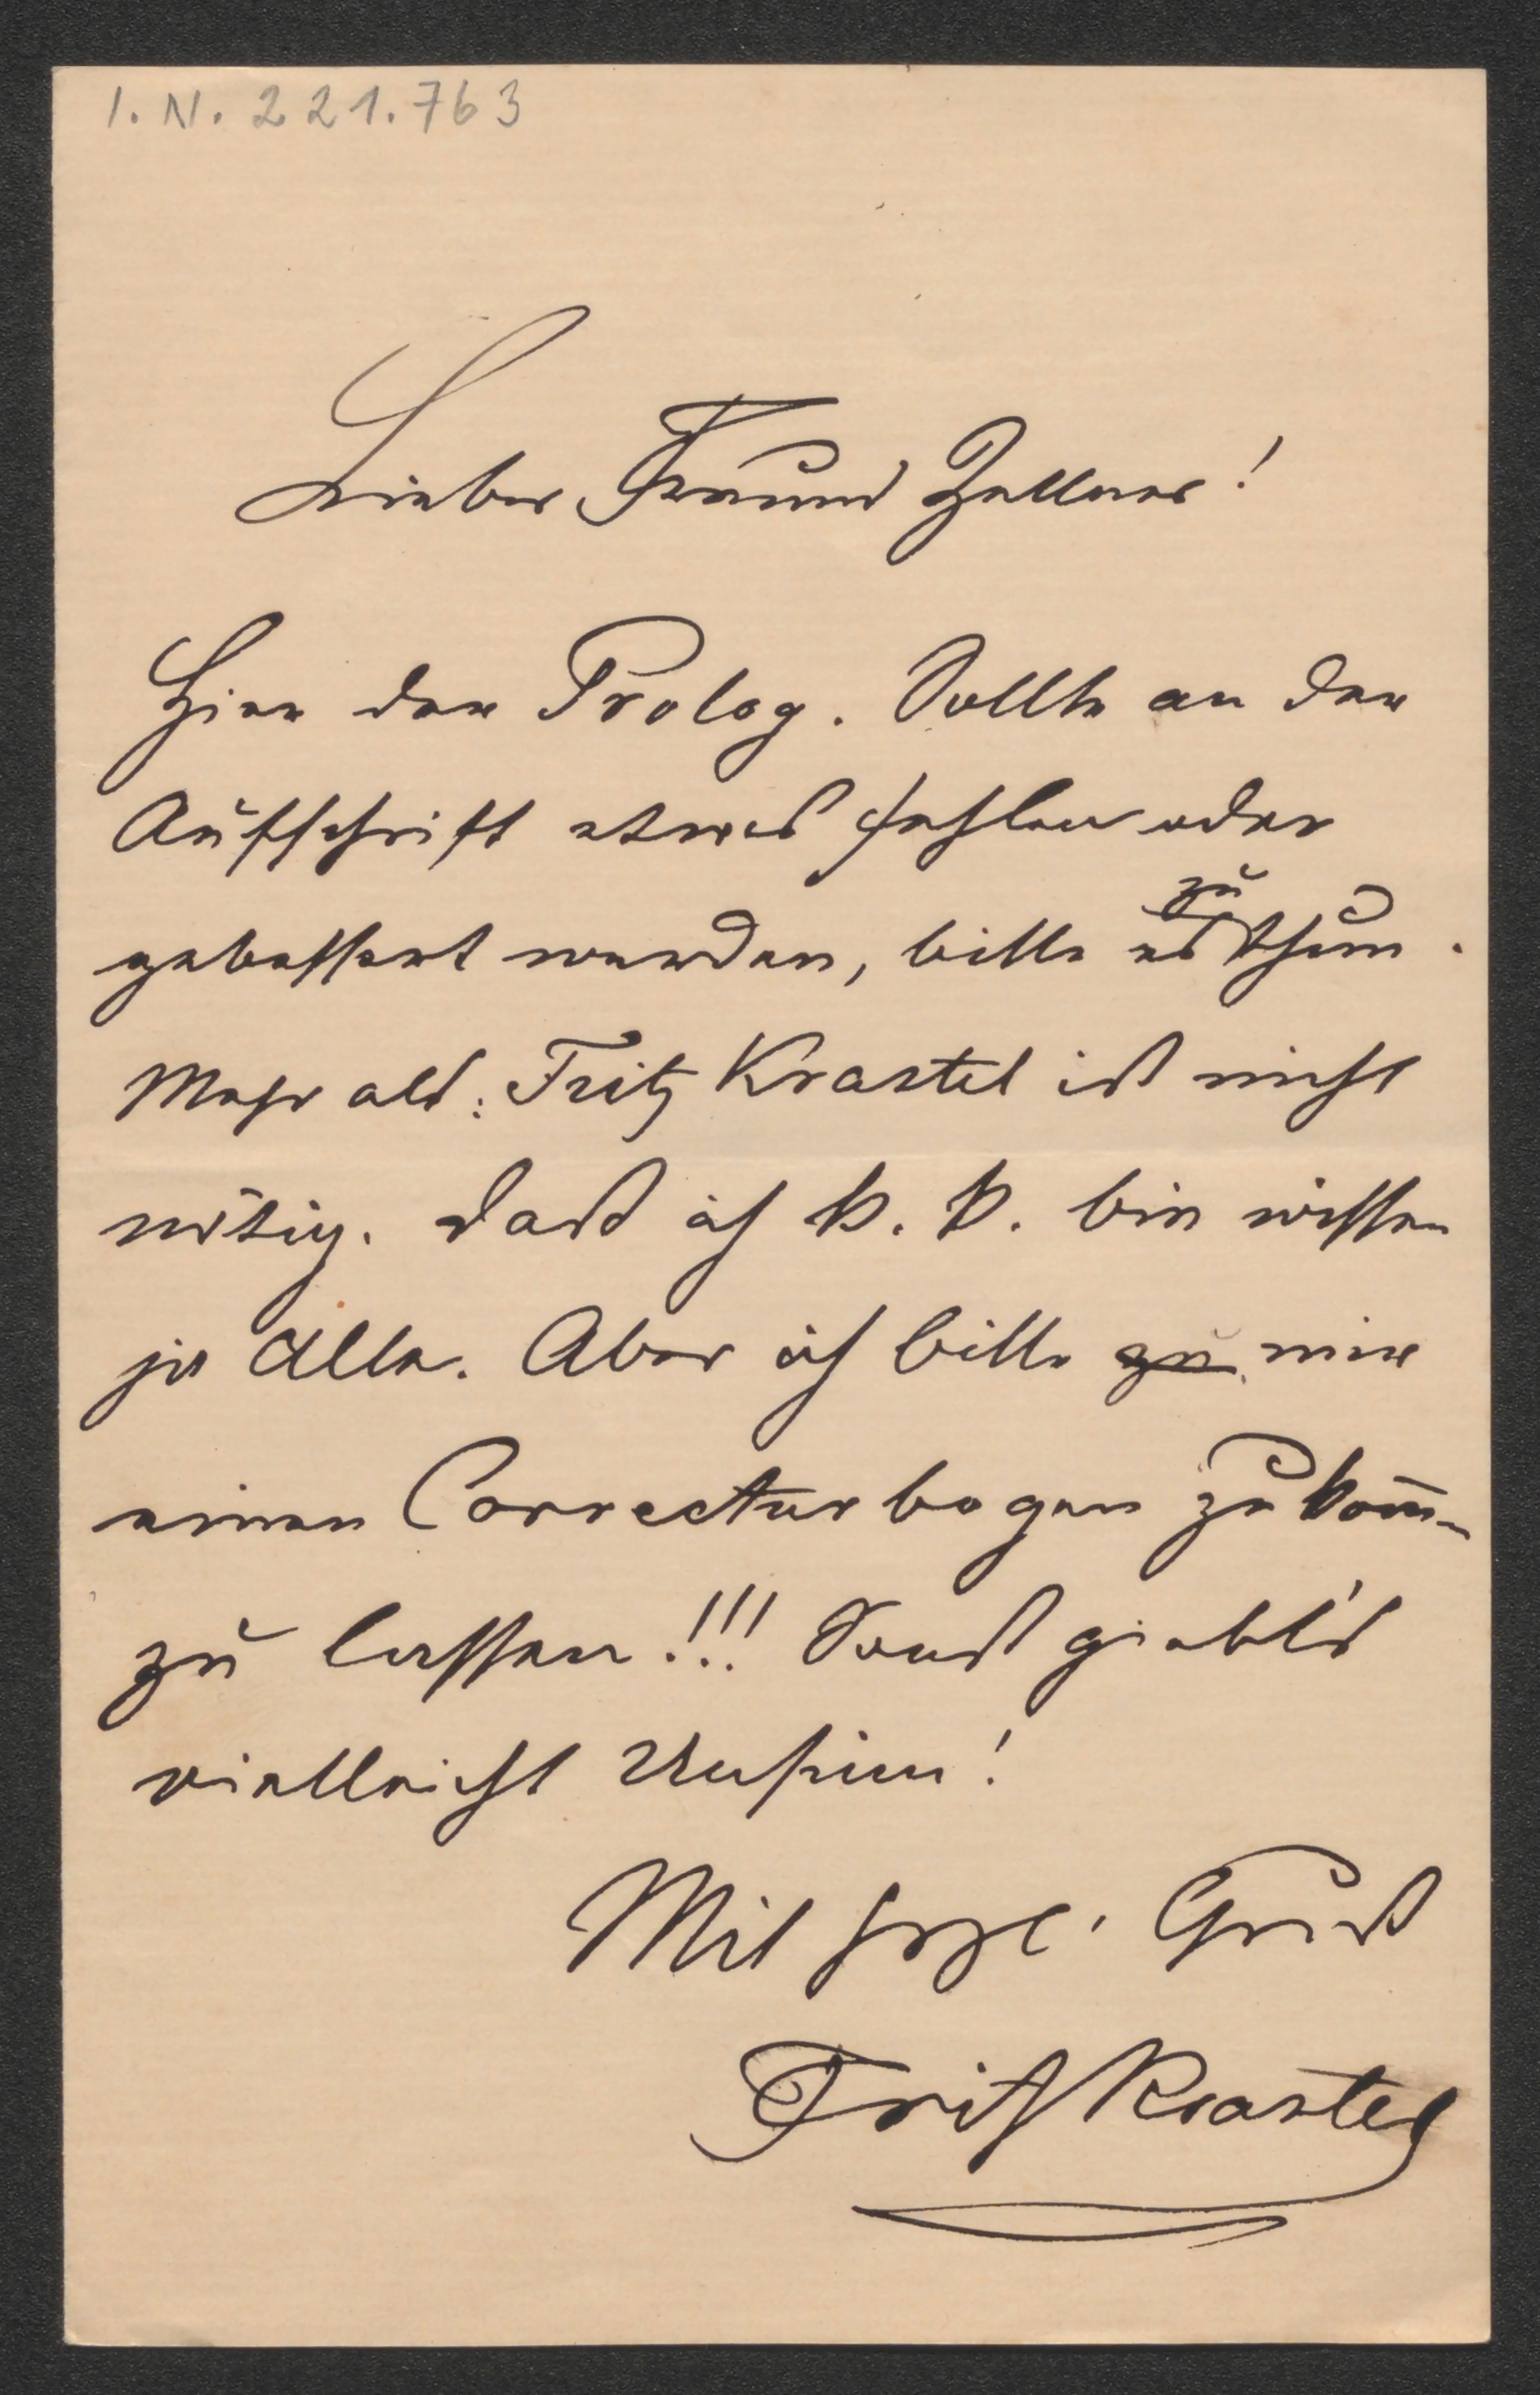 I. N. 221.763
Lieber Freund Zellner!
Hier der Prolog. Sollte an der
Aufschrift etwas fehlen oder
gebessert werden, bitte es zu thun.
Mehr als: Fritz Krastel ist nicht
nötig. Dass ich k. k. bin wissen
ja Alle. Aber ich bitte zu mir
einen Correcturbogen zukom̅en
zu lassen!!! Sonst giebt's
vielleicht Unsinn!
Mit herzl. Gruß
Fritz Krastel